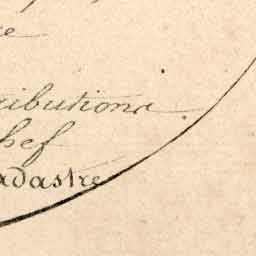 re
ributions
hef
adastre